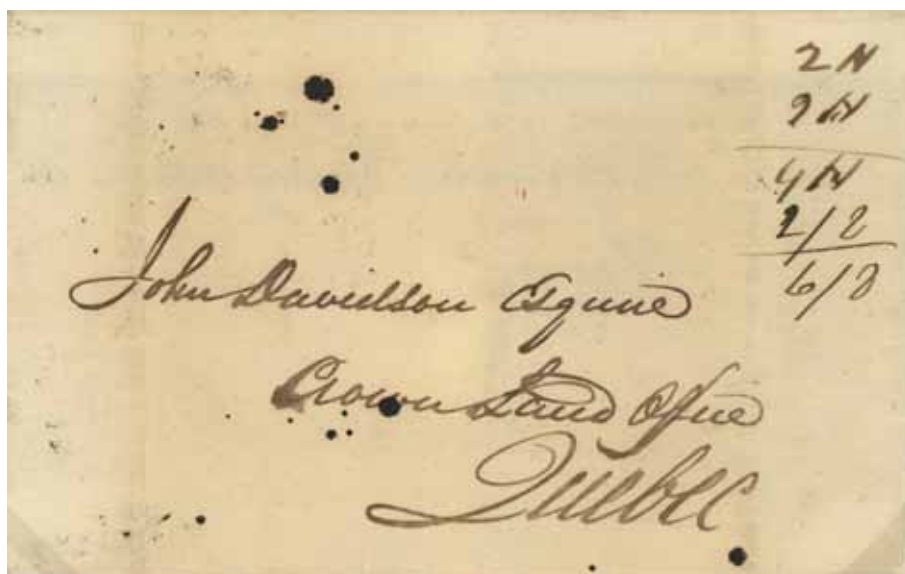 2 N
2 N
4 N
2/2
6/8
John Davidson Esquire
Crown Land Office
Quebec